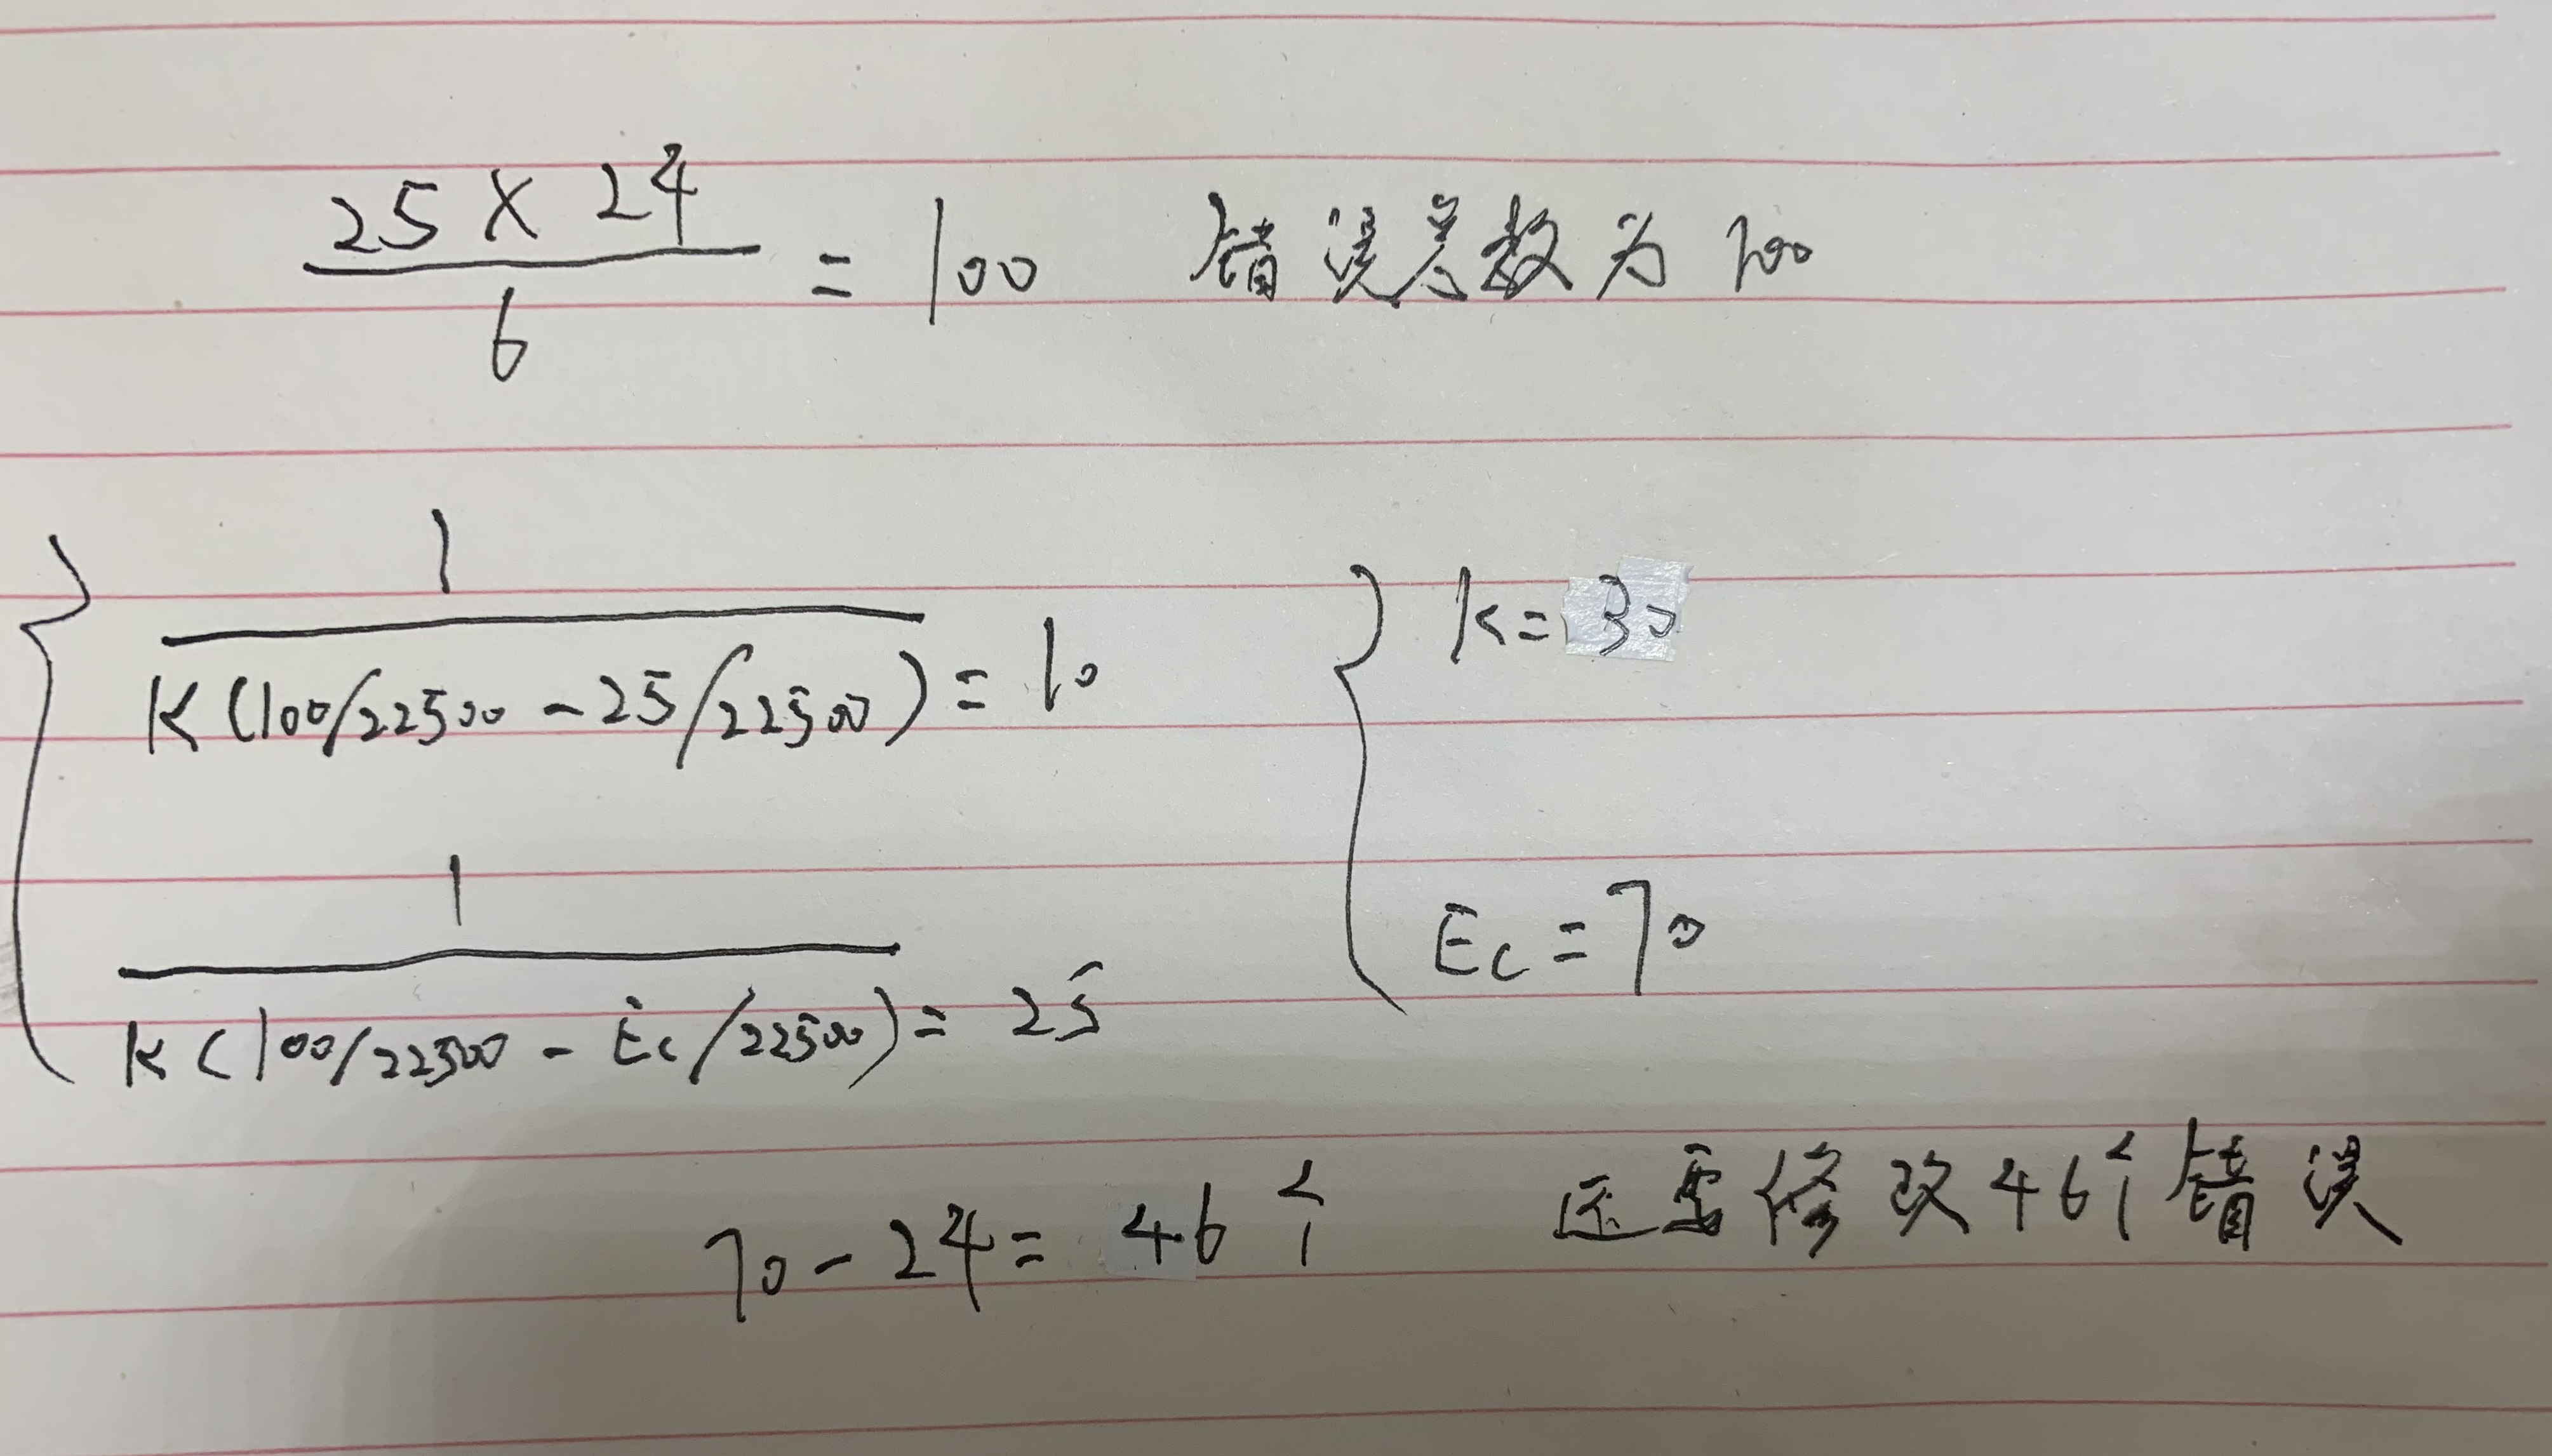 25 × 24 / 6 = 100 错误总数为100
1 / K(100/22500 - 25/22500) = 10
K = 30
1 / K(100/22500 - Ec/22500) = 25
Ec = 70
70 - 24 = 46个 还需修改46个错误